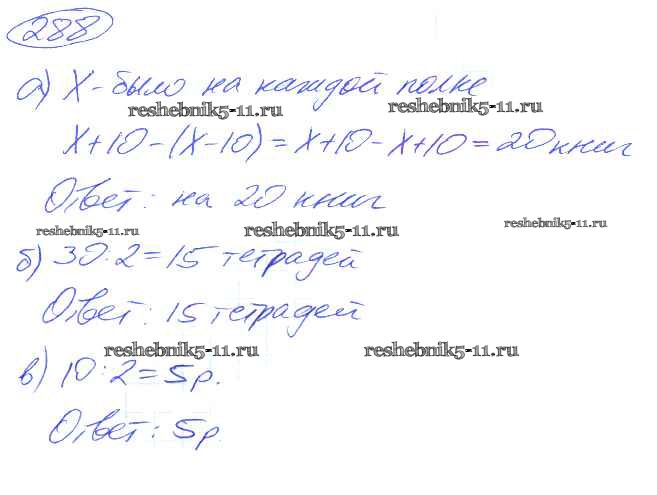 288
а) X - было на каждой полке
reshebnik5-11.ru reshebnik5-11.ru
X+10-(X-10)=X+10-X+10=20 книг
Ответ: на 20 книг
reshebnik5-11.ru reshebnik5-11.ru reshebnik5-11.ru
б) 30:2=15 тетрадей
Ответ: 15 тетрадей
reshebnik5-11.ru reshebnik5-11.ru
в) 10:2=5р.
Ответ: 5р.